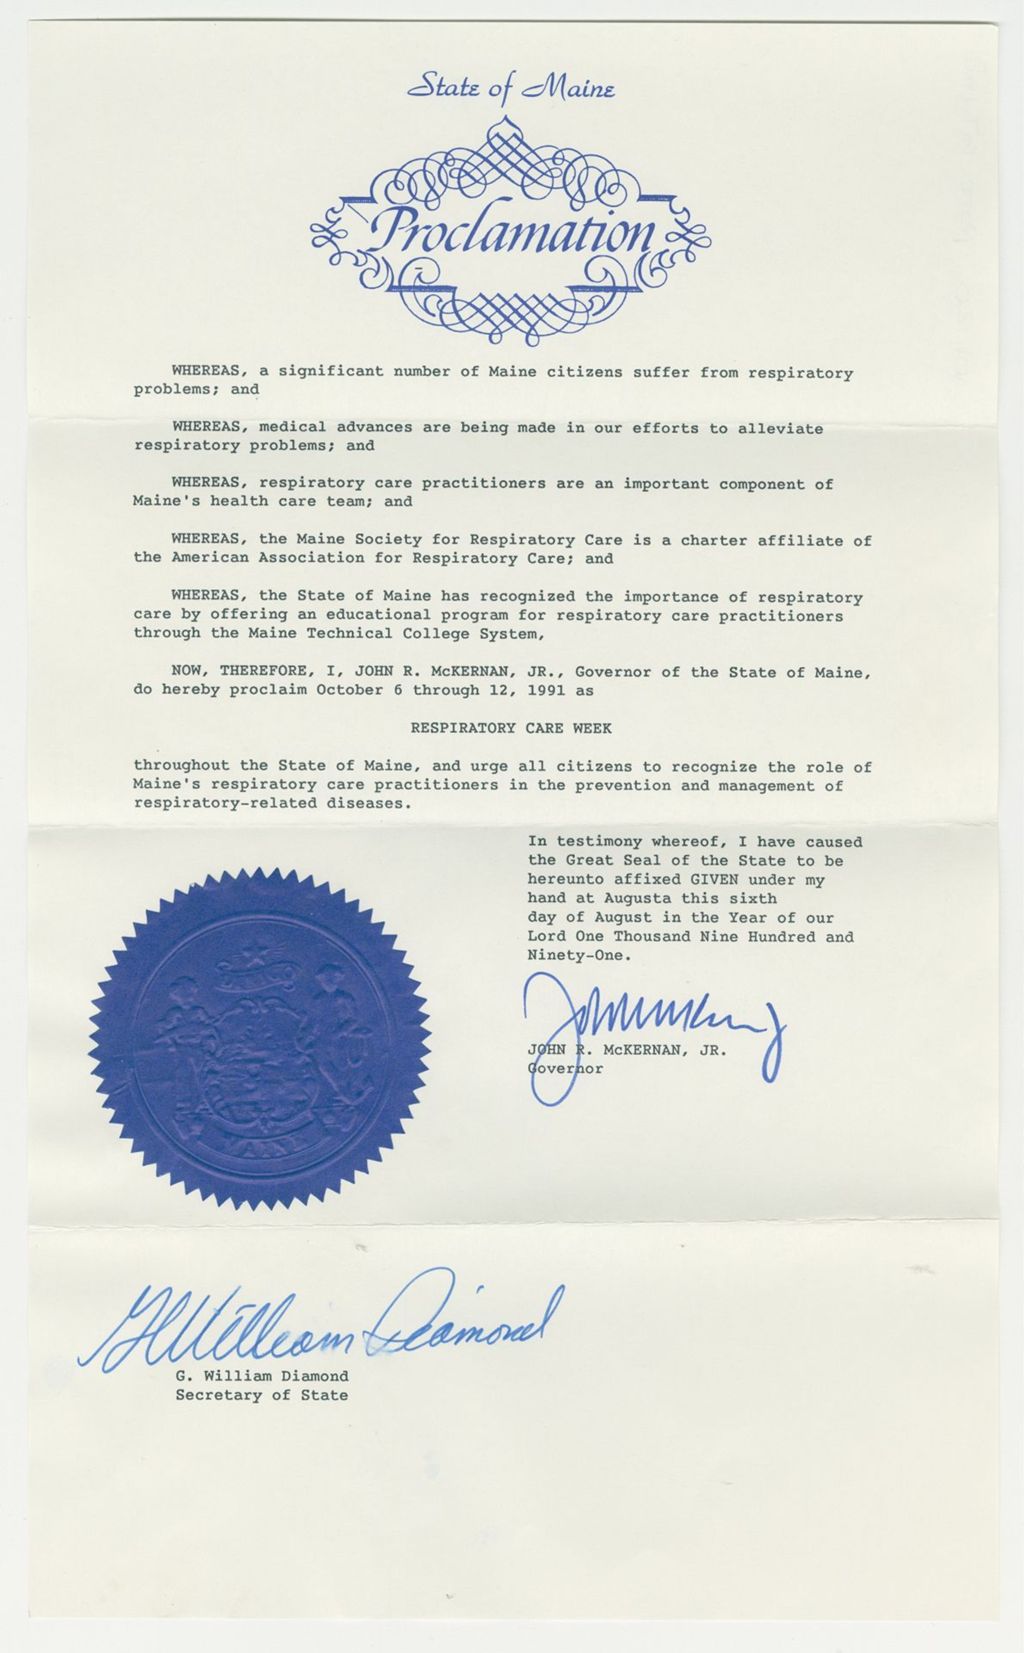 State of Maine
Proclamation
WHEREAS, a significant number of Maine citizens suffer from respiratory
problems; and
WHEREAS, medical advances are being made in our efforts to alleviate
respiratory problems; and
WHEREAS, respiratory care practitioners are an important component of
Maine's health care team; and
WHEREAS, the Maine Society for Respiratory Care is a charter affiliate of
the American Association for Respiratory Care; and
WHEREAS, the State of Maine has recognized the importance of respiratory
care by offering an educational program for respiratory care practitioners
through the Maine Technical College System,
NOW, THEREFORE, I, JOHN R. McKERNAN, JR., Governor of the State of Maine,
do hereby proclaim October 6 through 12, 1991 as
RESPIRATORY CARE WEEK
throughout the State of Maine, and urge all citizens to recognize the role of
Maine's respiratory care practitioners in the prevention and management of
respiratory-related diseases.
In testimony whereof, I have caused
the Great Seal of the State to be
hereunto affixed GIVEN under my
hand at Augusta this sixth
day of August in the Year of our
Lord One Thousand Nine Hundred and
Ninety-One.
JOHN R. McKERNAN, JR.
Governor
MAINE
G William Diamond
G. William Diamond
Secretary of State